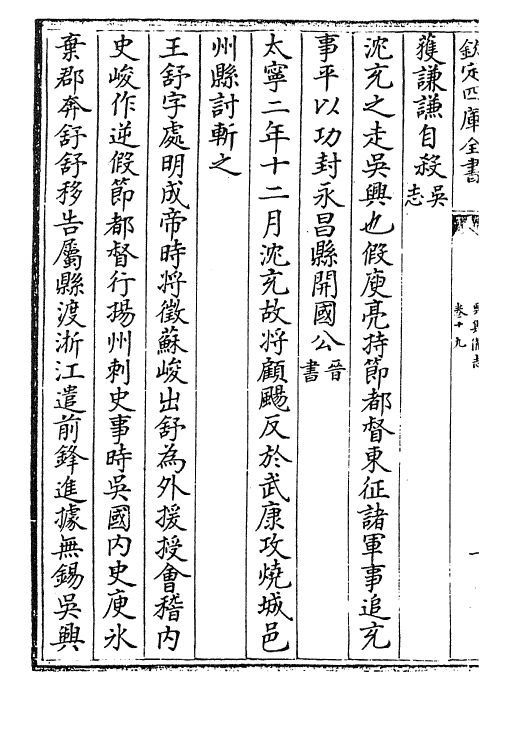 欽定四庫全書
卷十九
獲謙謙自殺吳志
沈充之走吳興也假庾亮持節都督東征諸軍事追充
事平以功封永昌縣開國公晉書
太寧二年十二月沈充故將顧颺反於武康攻燒城邑
州縣討斬之
王舒字處明成帝時將徵蘇峻出舒為外援授會稽内
史峻作逆假節都督行揚州刺史事時吳國内史庾冰
棄郡奔舒舒移告屬縣渡浙江遣前鋒進據無錫吳興